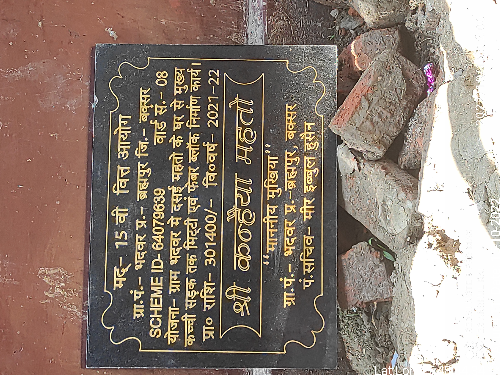 मद- 15 वी वित्त आयोग
ग्रा.पं.- भदवर प्र.- ब्रह्मपुर जि.- बक्सर
SCHEME ID- 64079639 वार्ड सं.- 08
योजना- ग्राम भदवर में दसई महतो के घर से मुख्य
कच्ची सड़क तक मिट्टी एवं फेबर ब्लॉक निर्माण कार्य।
प्रा० राशि- 301400/- वि०वर्ष- 2021-22
श्री कन्हैया महतो
"माननीय मुखिया"
ग्रा.पं.- भदवर प्र.-ब्रह्मपुर, बक्सर
पं.सचिव- मीर इब्बुल हुसैन